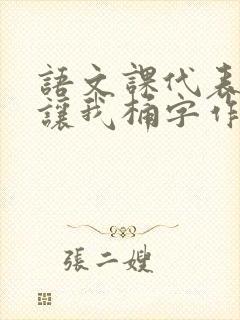 語文課代表
讓我桶字作
張二嫂